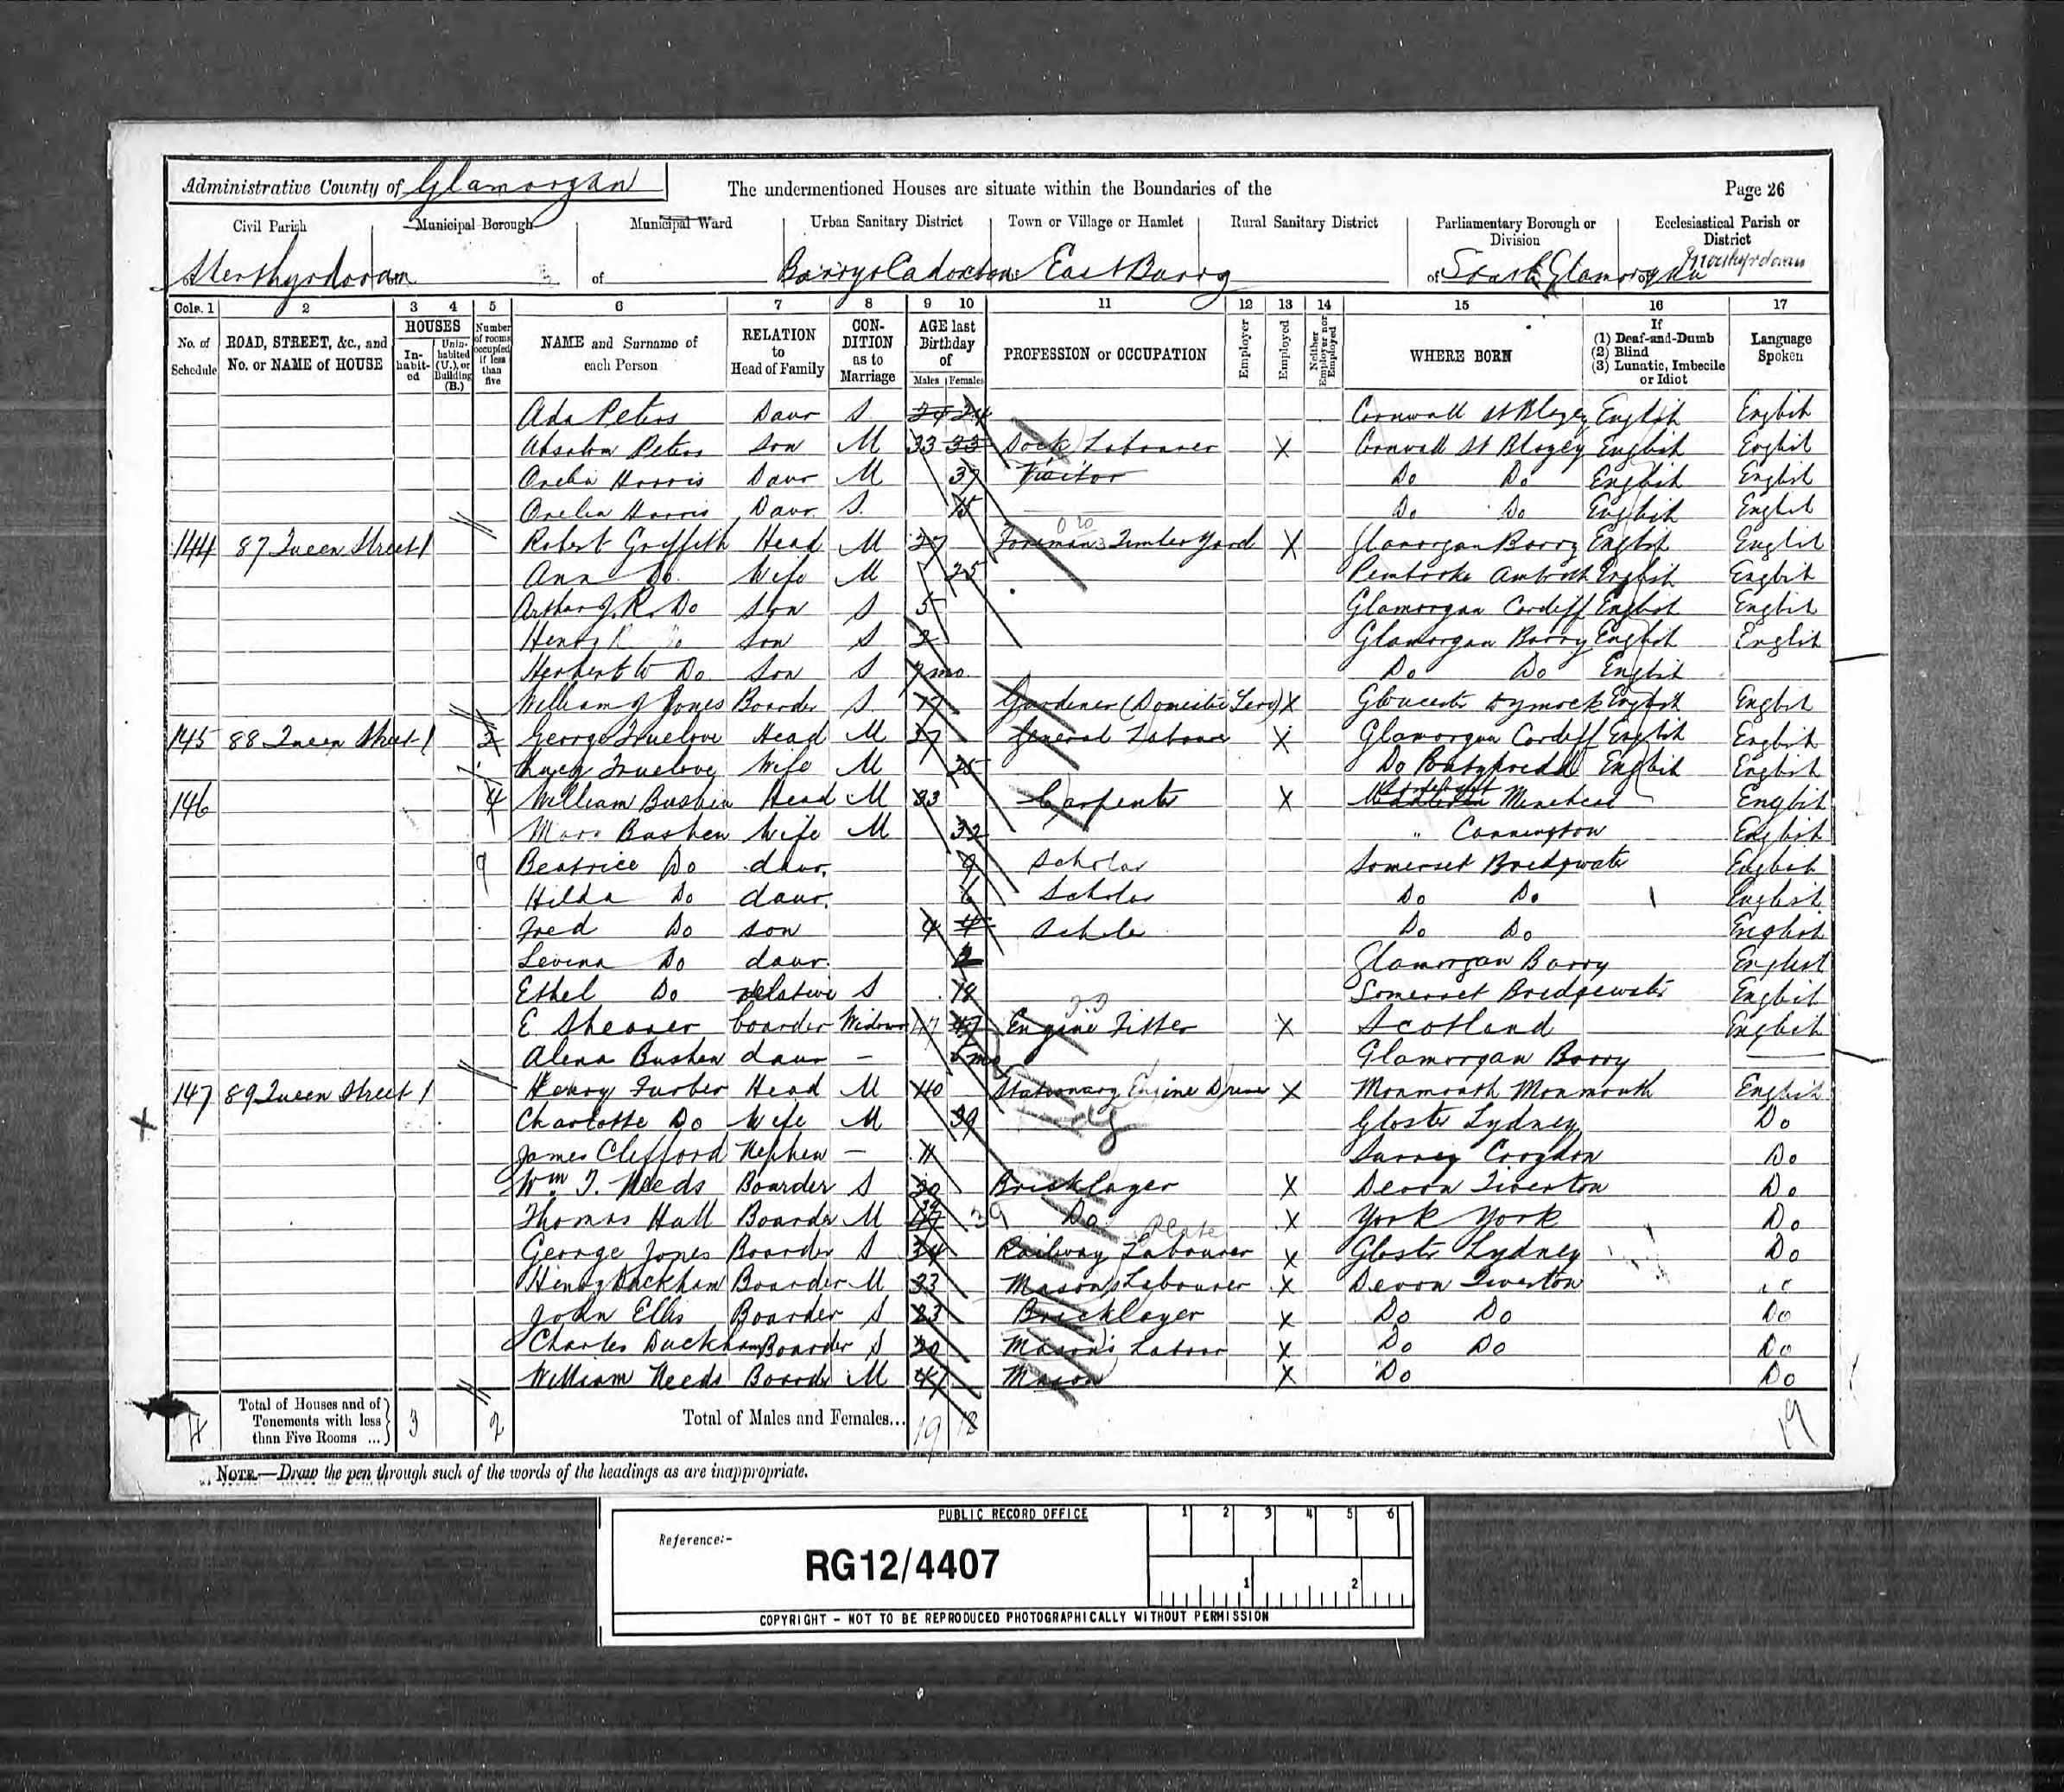 Administrative County of Glamorgan
The undermentioned Houses are situate within the Boundaries of the
Page 26
Civil Parish Municipal Borough Municipal Ward Urban Sanitary District Town or Village or Hamlet Rural Sanitary District Parliamentary Borough or Division Ecclesiastical Parish or District
Merthyrdovan of Barry & Cadoxton East Barry of South Glamorgan Merthyrdovan
Cols. 1 2 3 4 5 6 7 8 9 10 11 12 13 14 15 16 17
No. of Schedule ROAD, STREET, &c., and No. or NAME of HOUSE HOUSES In-habit-ed Unin-habited (U.), or Building (B.) Number of rooms occupied if less than five NAME and Surname of each Person RELATION to Head of Family CON-DITION as to Marriage AGE last Birthday of Males Females PROFESSION or OCCUPATION Employer Employed Neither Employer nor Employed WHERE BORN If (1) Deaf-and-Dumb (2) Blind (3) Lunatic, Imbecile or Idiot Language Spoken
Ada Peters Daur S. 24 24 Cornwall St Blazey English English
Absalom Peters Son M 33 33 Dock Labourer X Cornwall St Blazey English English
Orelia Harris Daur M 37 Visitor Do Do English English
Orelia Harris Daur. S. 15 Do Do English English
144 87 Queen Street 1 Robert Griffith Head M 27 Foreman Timber Yard X Glamorgan Barry English English
Ann Do. Wife M 25 Pembroke Amroth English English
Arthur J. R. Do Son S 5 Glamorgan Cardiff English English
Henry R Do Son S 2 Glamorgan Barry English English
Herbert W Do Son S 7 mo Do Do English
William J Jones Boarder S. 17 Gardener (Domestic Serv) X Gloucester Dymock English English
145 88 Queen Street 1 2 George Truelove Head M 27 General Labourer X Glamorgan Cardiff English English
Lucy Truelove Wife M 25 Do Pontypridd English English
146 4 William Bushen Head M 33 Carpenter X Somerset Minehead English
Mary Bushen Wife M 32 " Cannington English
9 Beatrice Do daur. 9 Scholar Somerset Bridgwater English
Hilda Do daur. 6 Scholar Do Do English
Fred Do son 4 4 Schlr Do Do English
Levina Do daur. 2 Glamorgan Barry English
Ethel Do relative S 18 Somerset Bridgewater English
E Shearer boarder Widower 47 47 Engine Fitter X Scotland English
Alena Bushen daur – 6 mo Glamorgan Barry
147 89 Queen Street 1 Henry Furber Head M 40 Stationary Engine Driver X Monmouth Monmouth English
Charlotte Do Wife M 39 Gloster Lydney Do
James Clifford Nephew – 11 Surrey Croydon Do
Wm T. Needs Boarder S 20 Bricklayer X Devon Tiverton Do
Thomas Hall Boarder M 39 Do X York York Do
George Jones Boarder S 34 Railway Plate Labourer X Gloster Lydney Do
Henry Duckham Boarder M 33 Mason's Labourer X Devon Tiverton "
John Ellis Boarder S 23 Bricklayer X Do Do Do
Charles Duckham Boarder S 20 Mason's Labour X Do Do Do
William Needs Boarder M 47 Mason X Do Do
4 Total of Houses and of Tenements with less than Five Rooms ... 3 2 Total of Males and Females... 19 18 19
NOTE.—Draw the pen through such of the words of the headings as are inappropriate.
PUBLIC RECORD OFFICE
1 2 3 4 5 6
Reference:-
RG12/4407
1 2
COPYRIGHT - NOT TO BE REPRODUCED PHOTOGRAPHICALLY WITHOUT PERMISSION